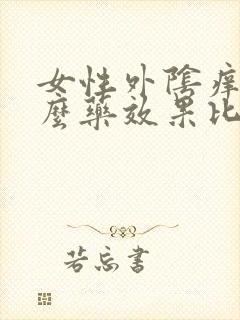 女性外陰痒
麼藥效果比
若忘書